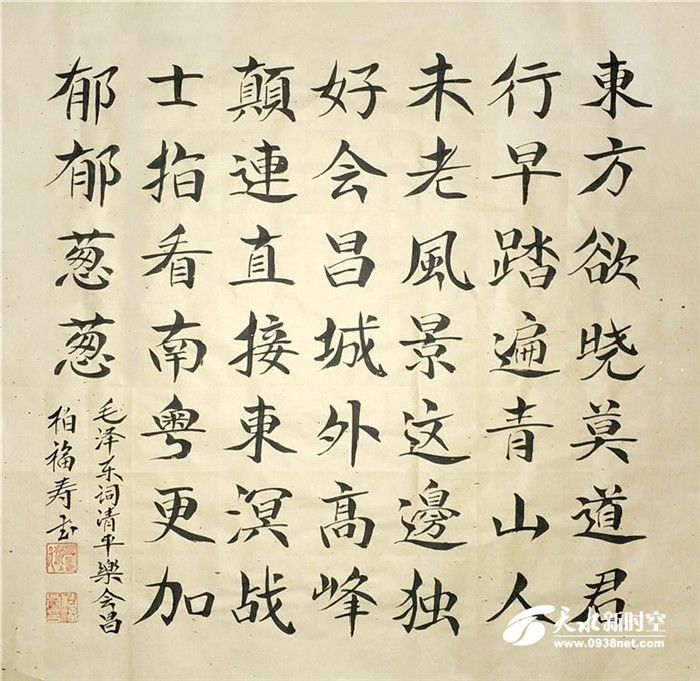 東方欲晓莫道君
行早踏遍青山人
未老風景这邊独
好会昌城外高峰
顛連直接東溟战
士指看南粤更加
郁郁葱葱
毛泽东词清平樂会昌
柏福寿书
天水新时空
www.0938net.com